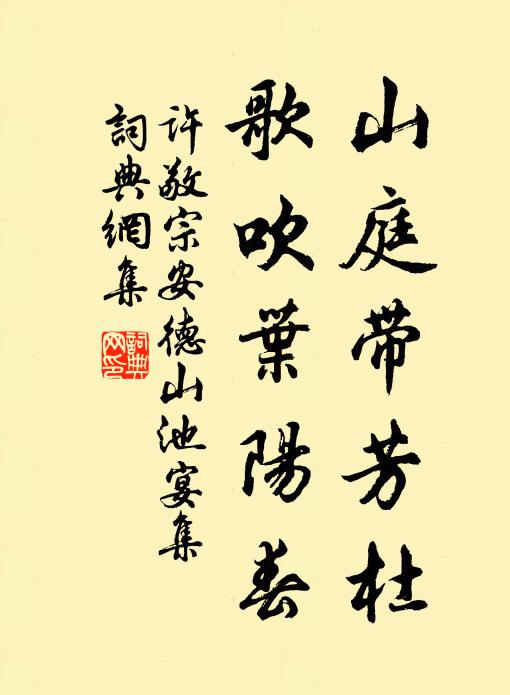 山庭带芳杜
歌吹葉陽春
許敬宗安德山池宴集
詞典網集
詞典网印